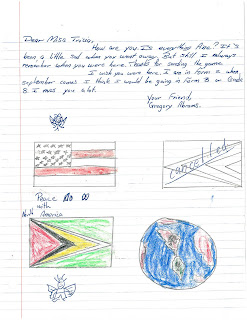 Dear Miss Tricia,
How are you. Is everything fine? It's
been a little sad when you went away. But still I always
remember when you were here. Thanks for sending the game.
I wish you were here. I am in form 2 when
september comes I think I would be going in Form 3 or Grade
8. I miss you alot.
Your Friend,
Gregory Abrams.
cancelled
Peace
with
North America